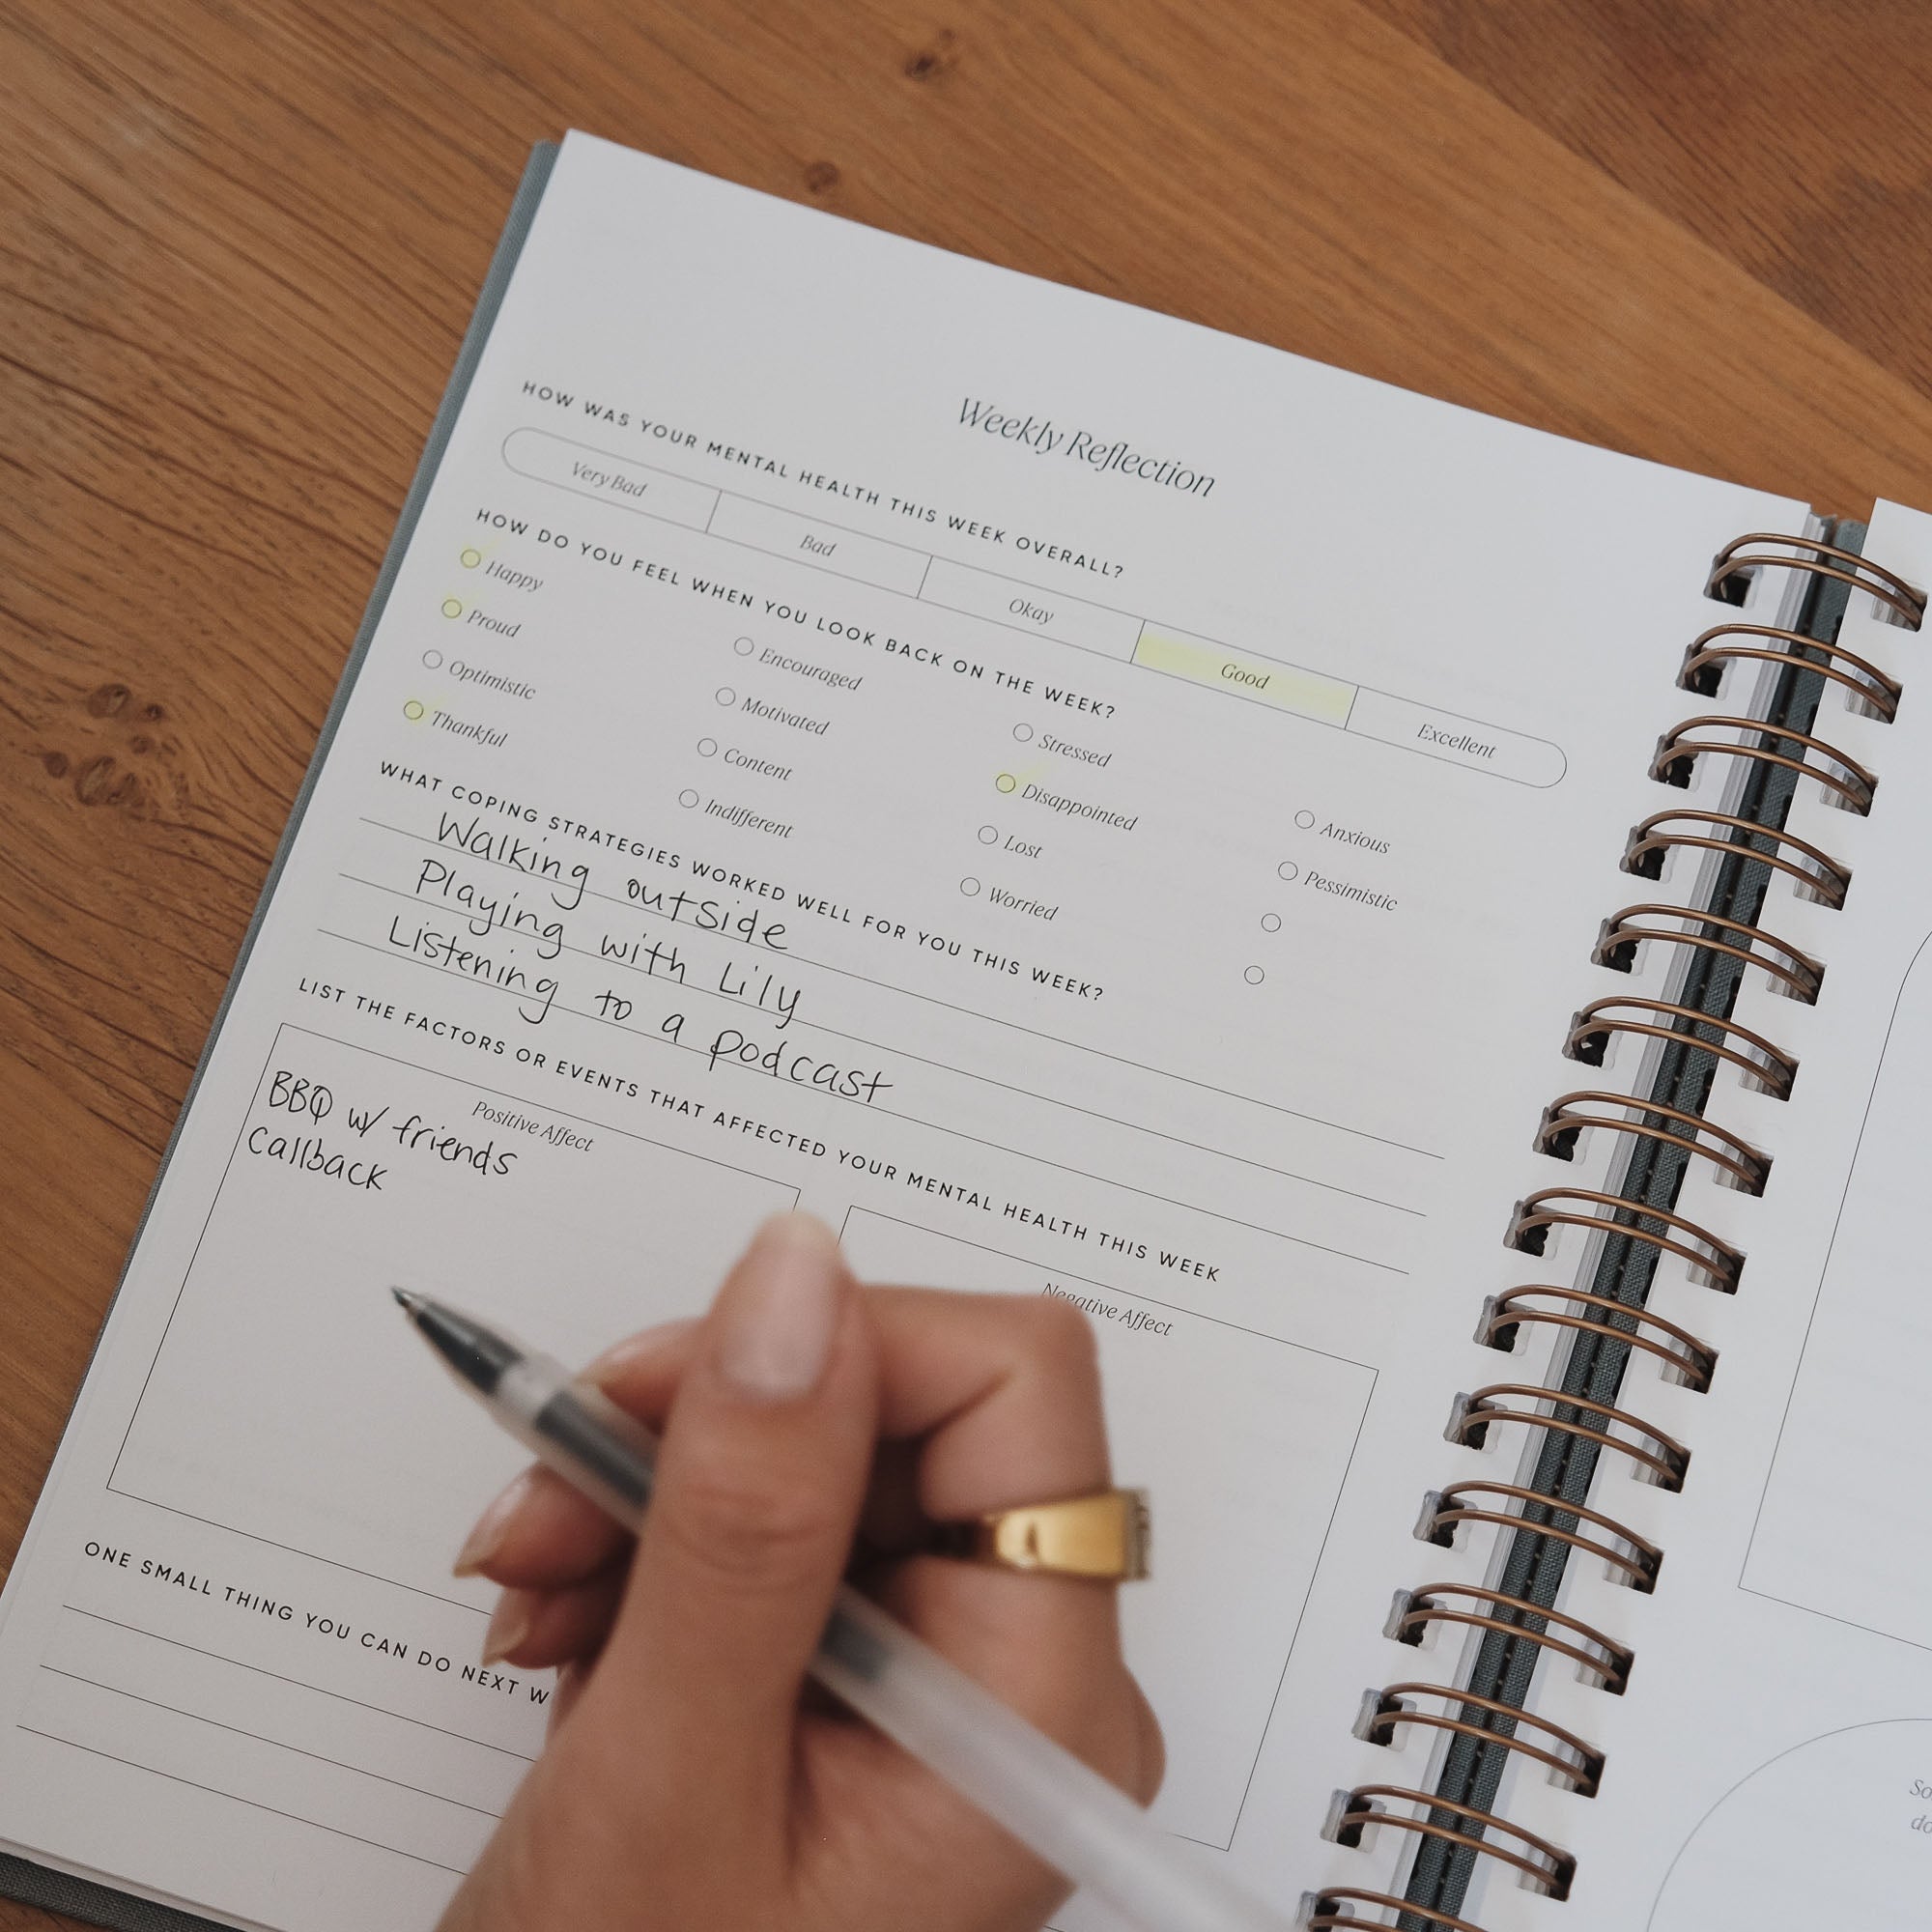 Weekly Reflection
HOW WAS YOUR MENTAL HEALTH THIS WEEK OVERALL?
Very Bad Bad Okay Good Excellent
HOW DO YOU FEEL WHEN YOU LOOK BACK ON THE WEEK?
Happy Encouraged Stressed Anxious
Proud Motivated Disappointed Pessimistic
Optimistic Content Lost
Thankful Indifferent Worried
WHAT COPING STRATEGIES WORKED WELL FOR YOU THIS WEEK?
Walking outside
Playing with Lily
Listening to a podcast
LIST THE FACTORS OR EVENTS THAT AFFECTED YOUR MENTAL HEALTH THIS WEEK
Positive Affect
BBQ w/ friends
Callback
Negative Affect
ONE SMALL THING YOU CAN DO NEXT W